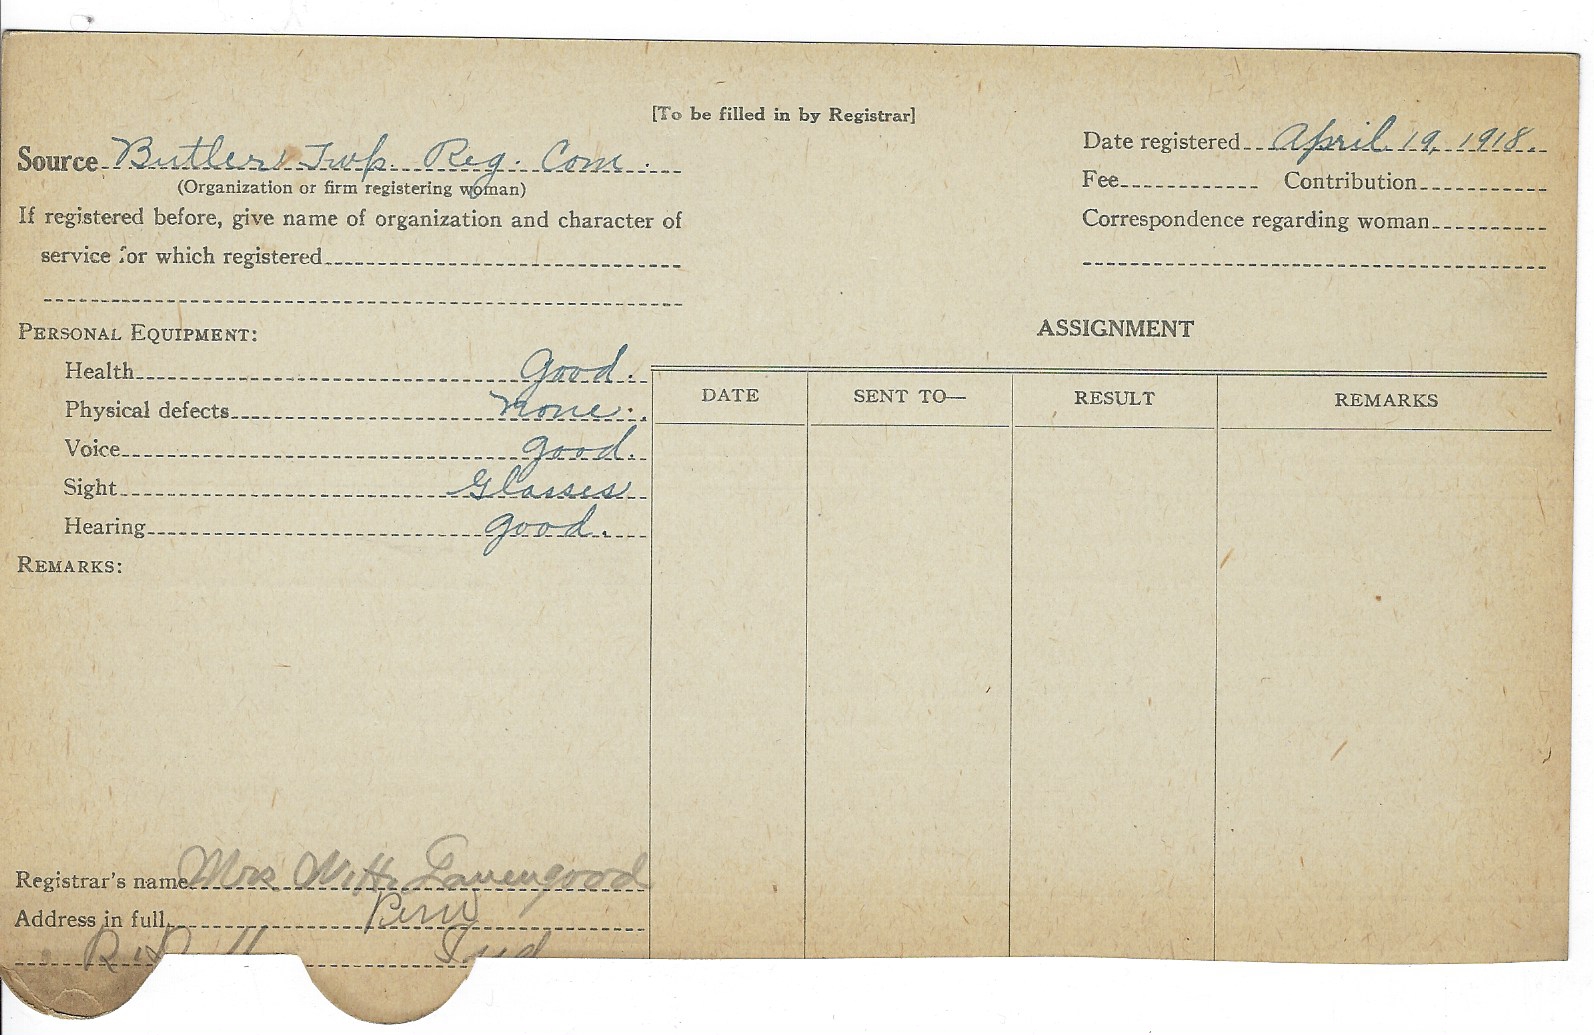 [To be filled in by Registrar]
Source Butler Twp. Reg. Com.
(Organization or firm registering woman)
If registered before, give name of organization and character of
service for which registered
Date registered April 19, 1918.
Fee Contribution
Correspondence regarding woman
PERSONAL EQUIPMENT:
Health Good.
Physical defects none.
Voice good.
Sight Glasses
Hearing good.
REMARKS:
ASSIGNMENT
DATE SENT TO— RESULT REMARKS
Registrar's name Mrs
Address in full, Peru
Ind